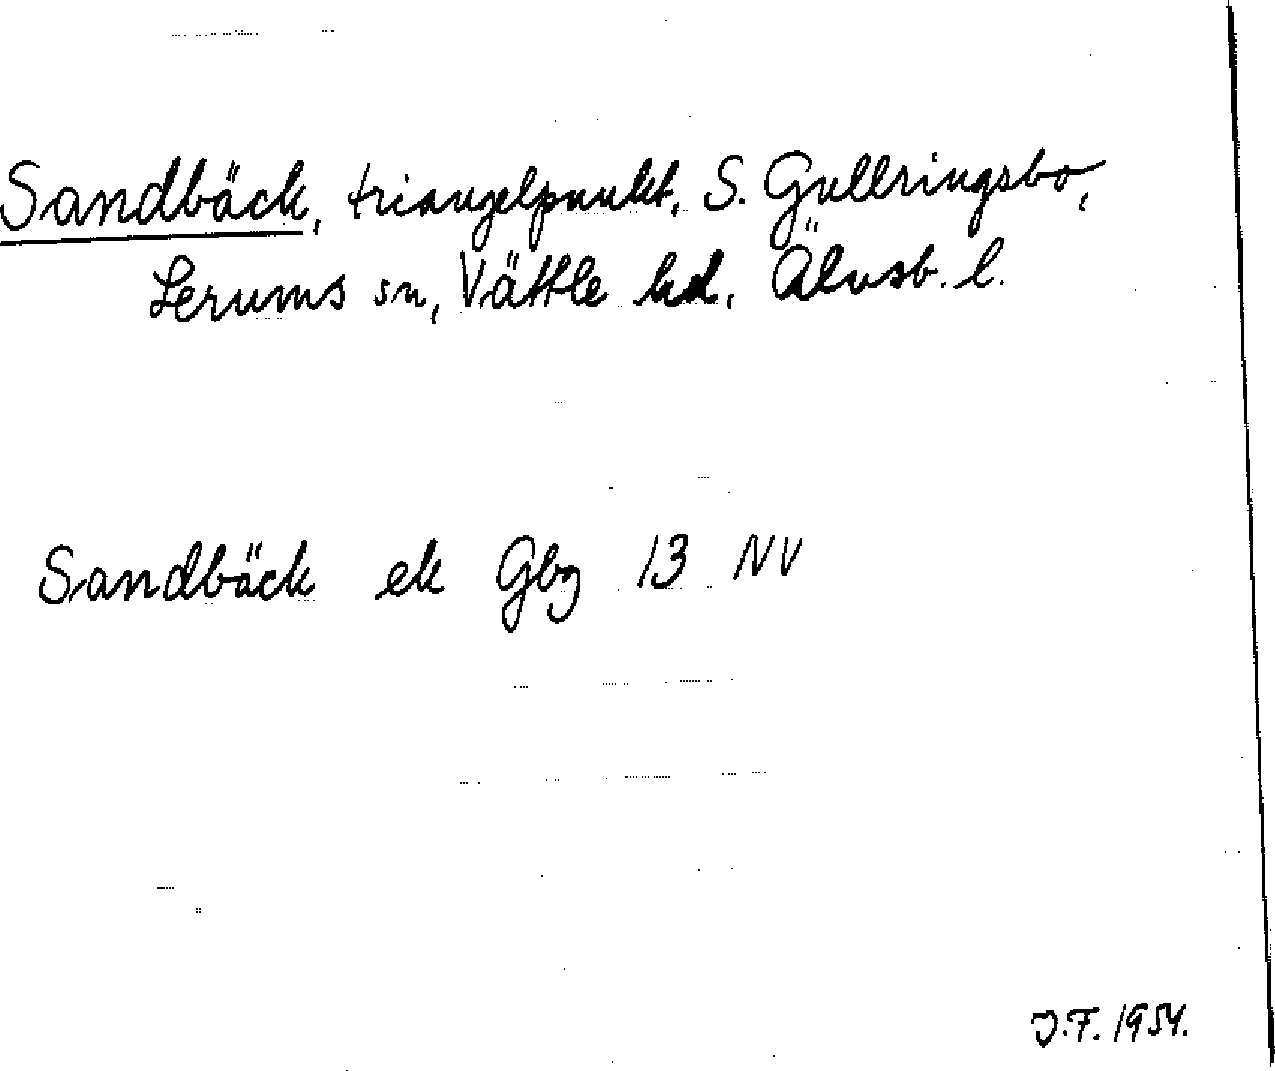 Sandbäck, triangelpunkt, S. Gullringsbo,
Lerums sn, Vättle hd, Älvsb. l.
Sandbäck ek Gbg 13 NV
J.F. 1954.